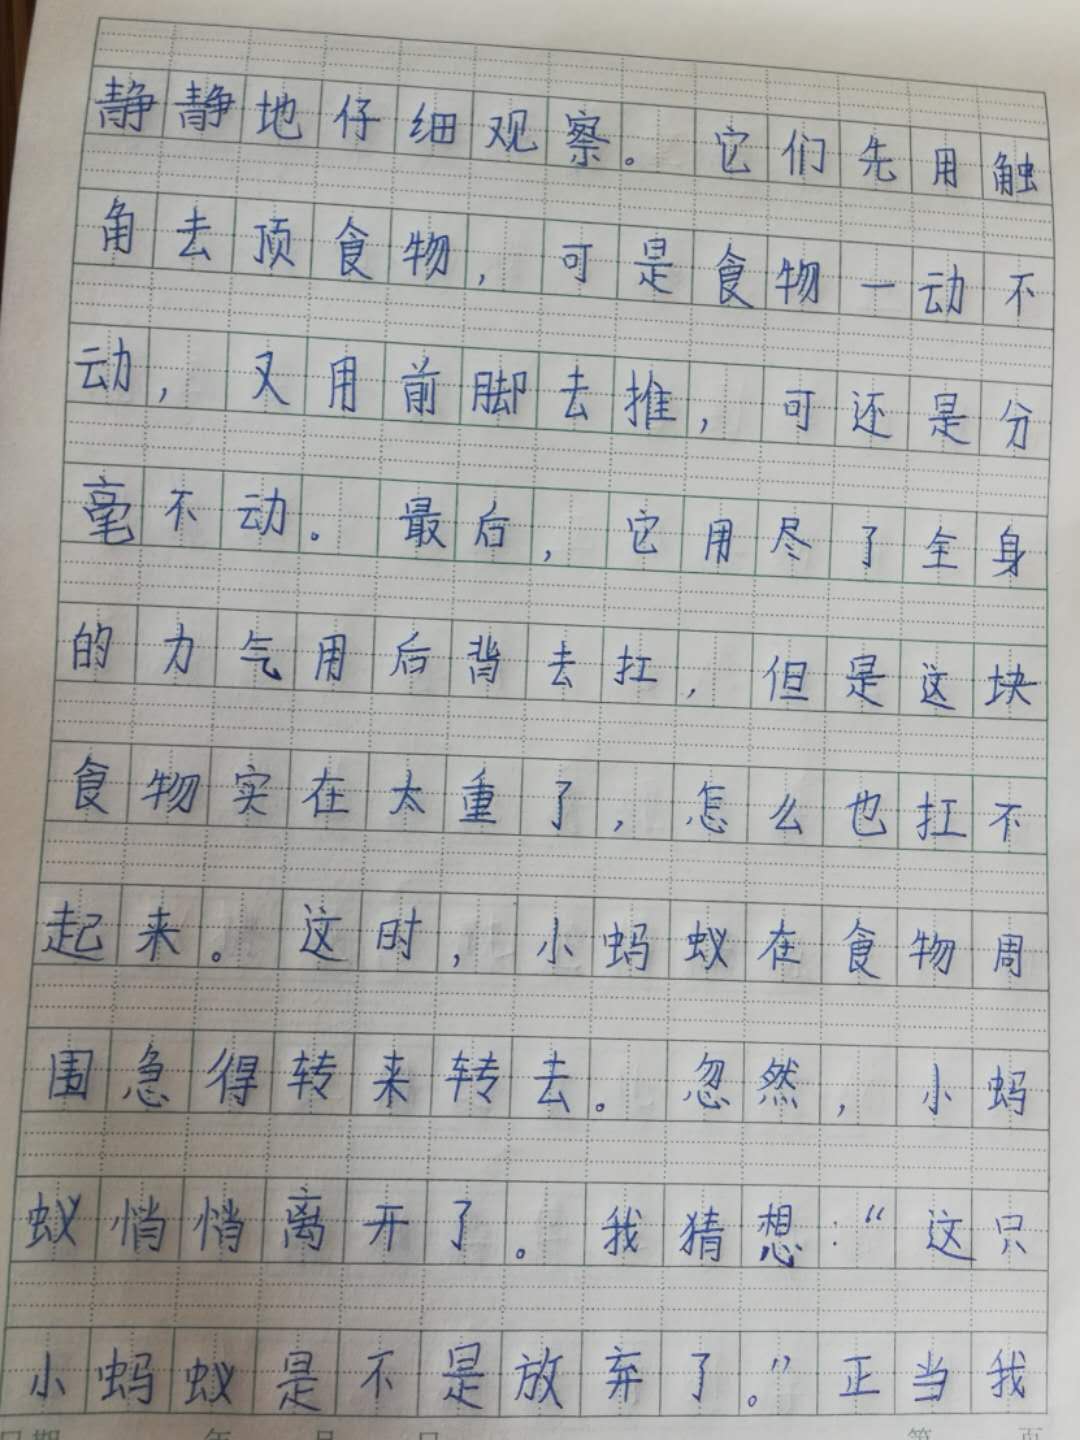 静静地仔细观察。它们先用触
角去顶食物，可是食物一动不
动，又用前脚去推，可还是分
毫不动。最后，它用尽了全身
的力气用后背去扛，但是这块
食物实在太重了，怎么也扛不
起来。这时，小蚂蚁在食物周
围急得转来转去。忽然，小蚂
蚁悄悄离开了。我猜想：“这只
小蚂蚁是不是放弃了。”正当我